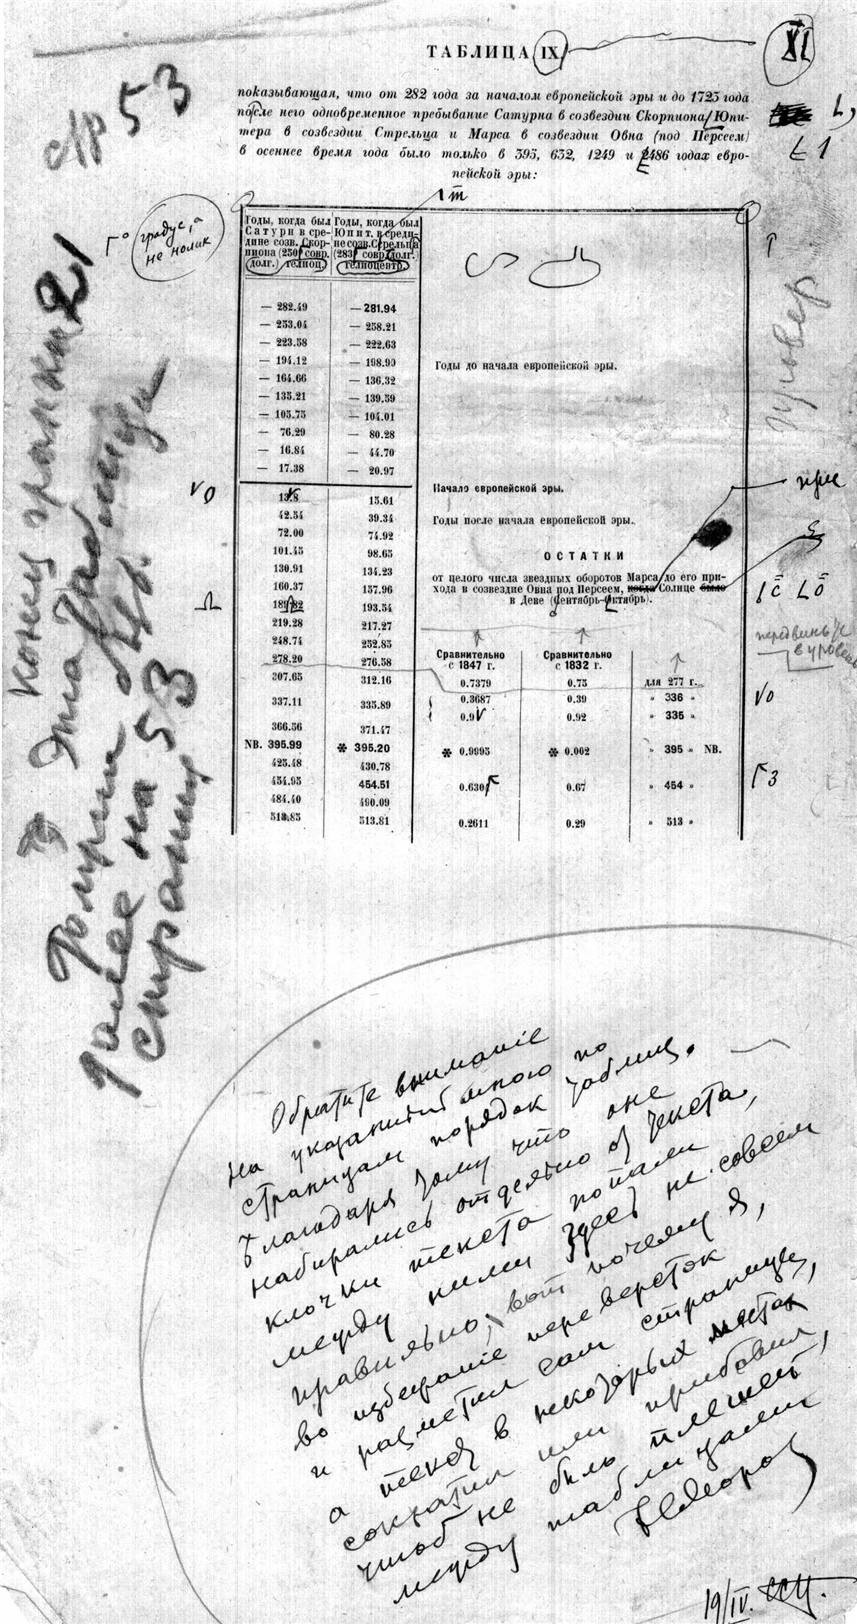 ТАБЛИЦА IX.
XI
стр 53
показывающая, что от 282 года за началом европейской эры и до 1723 года
после него одновременное пребывание Сатурна в созвездии Скорпиона, Юпи-
тера в созвездии Стрельца и Марса в созвездии Овна (под Персеем)
в осеннее время года было только в 393, 632, 1249 и 2486 годах евро-
пейской эры:
1 т
градус,
не нолик
Годы, когда был
Сатурн в сре-
дине созв. Скор-
пиона (250 совр.
долг.) гелиоц.
Годы, когда был
Юпит. в среди-
не созв. Стрельца
(283 совр. долг.)
гелиоцентр.
— 282.49 — 281.94
— 253.04 — 258.21
— 223.58 — 222.63
— 194.12 — 198.99 Годы до начала европейской эры.
— 164.66 — 136.32
— 135.21 — 139.59
— 105.75 — 104.01
— 76.29 — 80.28
— 16.84 — 44.70
— 17.38 — 20.97
13.8 15.61 Начало европейской эры.
42.54 39.34 Годы после начала европейской эры.
72.00 74.92
101.45 98.65 ОСТАТКИ
130.91 134.23 от целого числа звездных оборотов Марса до его при-
160.37 157.96 хода в созвездие Овна под Персеем, когда Солнце было
189.82 193.54 в Деве (Сентябрь-Октябрь).
219.28 217.27
248.74 252.85 Сравнительно с 1847 г. Сравнительно с 1832 г.
278.20 276.58
307.65 312.16 0.7379 0.75 для 277 г.
337.11 335.89 0.3687 0.39 » 336 »
0.9 0.92 » 335 »
366.56 371.47
NB. 395.99 * 395.20 * 0.9995 * 0.002 » 395 » NB.
425.48 430.78
454.95 454.51 0.6304 0.67 » 454 »
484.40 490.09
513.85 513.81 0.2611 0.29 » 513 »
конец гранки 21
Эта таблица
далее на 53
странице
Обратите внимание
на указанный мною по
страницам порядок таблиц.
Благодаря тому что оне
набирались отдельно от текста,
клочки текста попали
между ними здесь не совсем
правильно, вот почему я,
во избежание переверсток
и разметил сам страницы,
а текст в некоторых местах
сократил или прибавил,
чтоб не было плешей
между таблицами
19/IV.